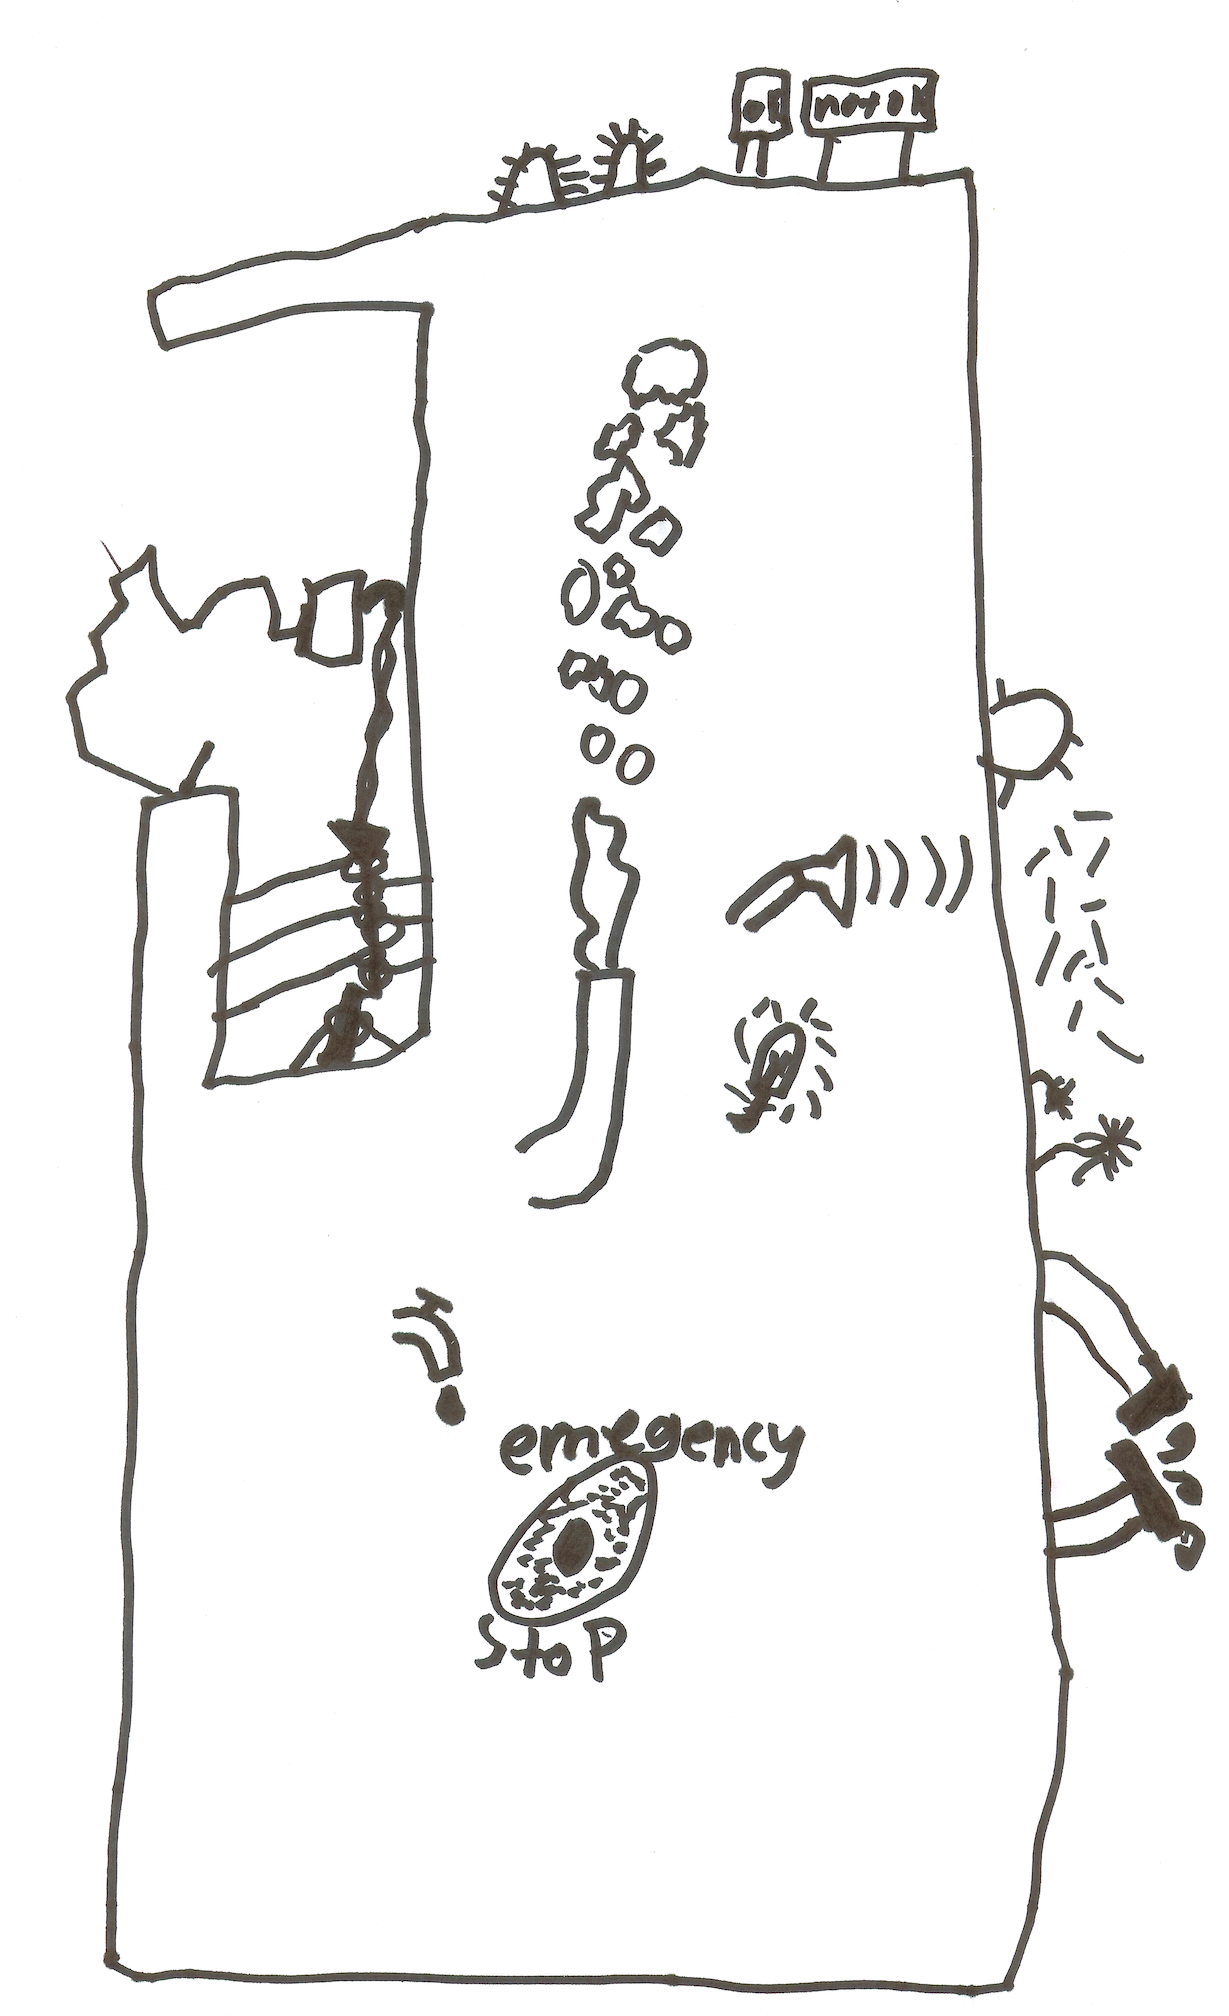 ok
not ok
emegency
stop